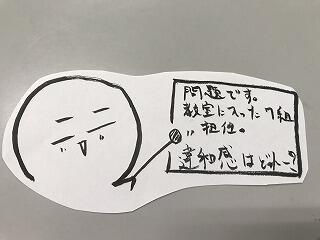 問題です。
教室に入った7組
〃 担任。
違和感はどれ〜?